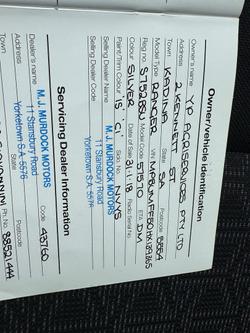 Owner/vehicle identification
Owner's name YP AGRISERVICES PTY LTD
Address 2 KENNETT ST
Town KADINA State SA Postcode 5554
Model Type RANGER VIN
Reg no. S152BSU Model Code ETA DM
Colour SILVER Date of Sale 31-1-18 Radio Serial No.
Paint/Trim Colour Side No. NVYS
Selling Dealer Name M. J. MURDOCK MOTORS
11 Stansbury Road
Selling Dealer Address Yorketown S.A. 5576
Servicing Dealer Information
Dealer's name M. J. MURDOCK MOTORS Code 43760
11 Stansbury Road
Address Yorketown S.A. 5576
Town State Postcode
Ph. No. 88521444